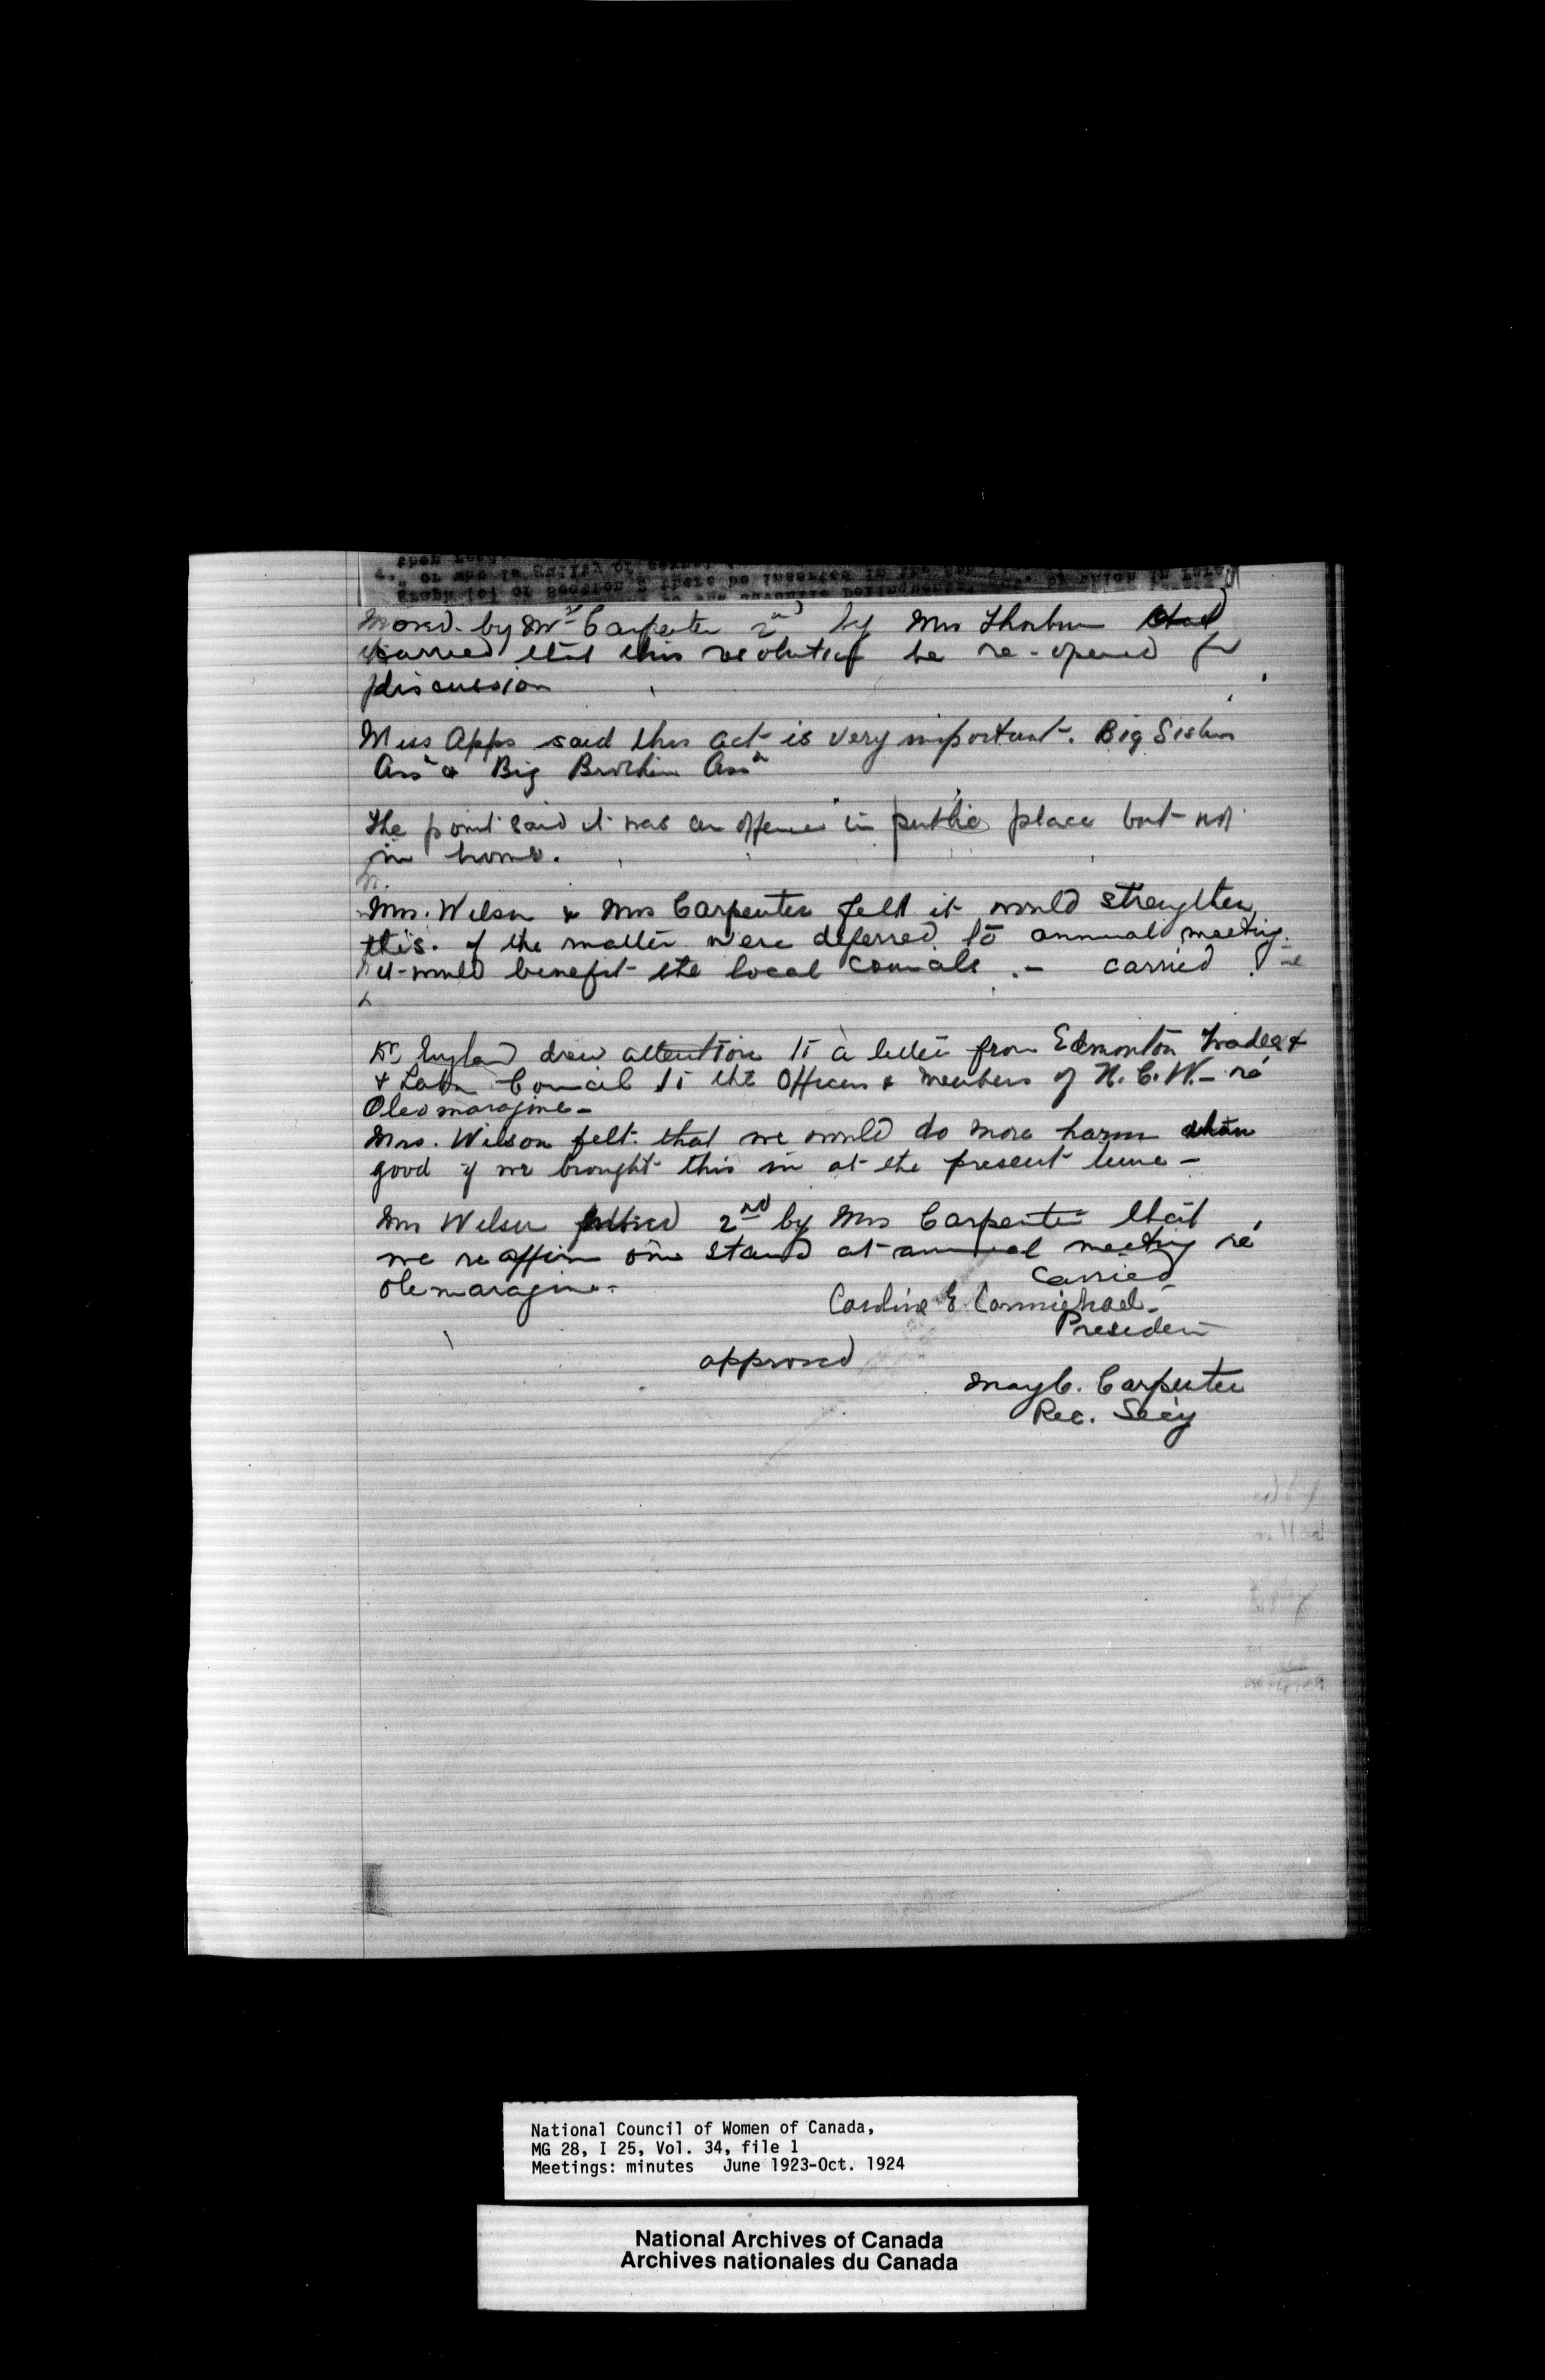 Moved. by Mrs Carpenter 2nd by Mrs Thorburn
carried that this resolution be re-opened for
discussion
Miss Apps said this act is very important. Big Sisters
Assn & Big Brother Assn
The point said it was an offence in public place but not
in home.
Mrs. Wilson & Mrs Carpenter felt it would strengthen
this. if the matter were deferred to annual meeting.
it would benefit the local councils .- carried
Dr England drew attention to a letter from Edmonton Trades &
& Labor Council to the Officers & members of N.C.W.- re
Oleomaragine-
Mrs. Wilson felt that we would do more harm than
good if we brought this in at the present time -
Mrs Wilson moved 2nd by Mrs Carpenter that
we reaffirm our stand at annual meeting re
oleomaragine-
Carried
Caroline E Carmichael-
President
approved
May C. Carpenter
Rec. Sec'y
National Council of Women of Canada,
MG 28, I 25, Vol. 34, file 1
Meetings: minutes June 1923-Oct. 1924
National Archives of Canada
Archives nationales du Canada